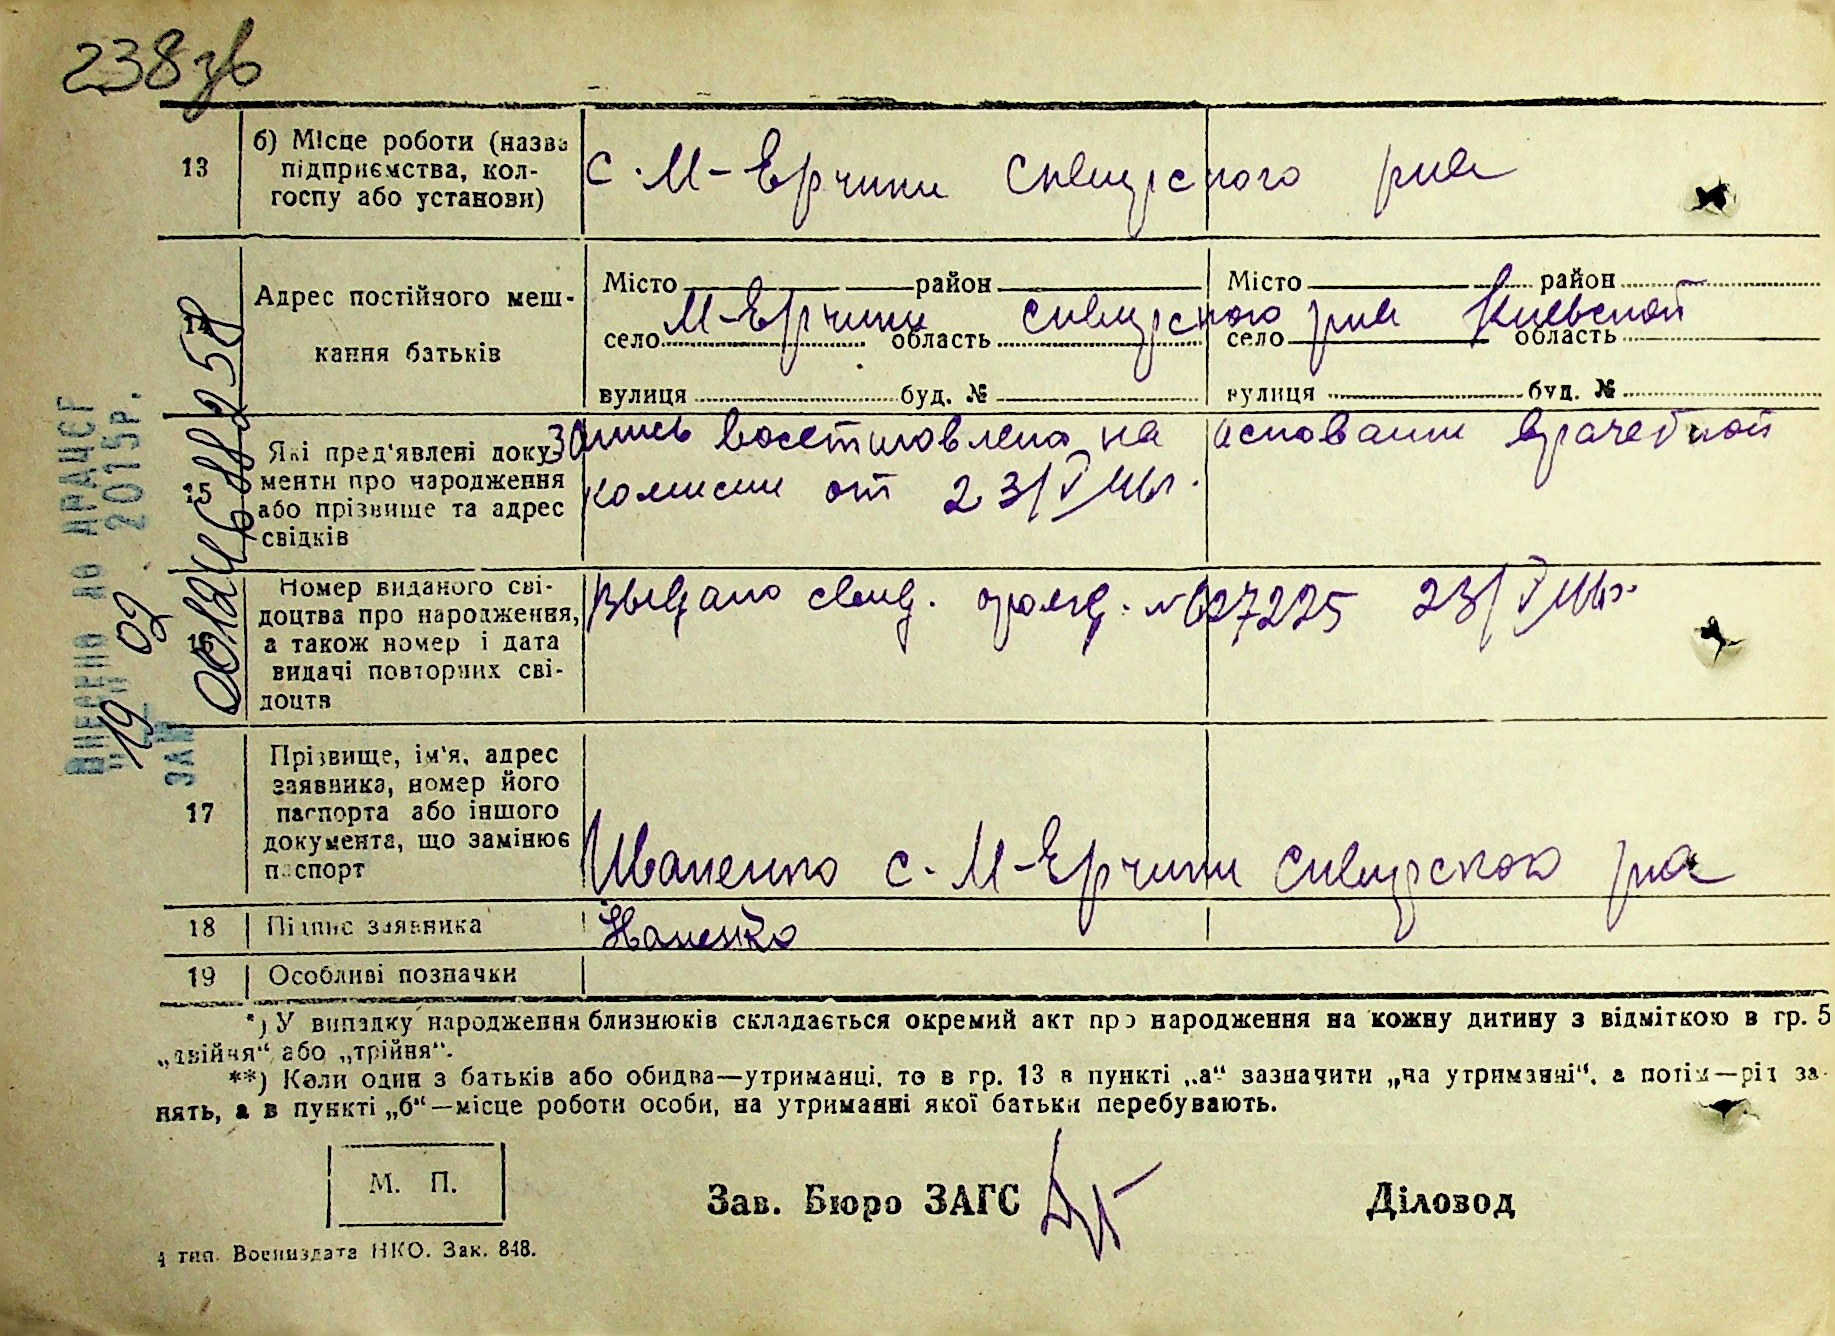 238зв
13
б) Місце роботи (назва
підприємства, кол-
госпу або установи)
с. М-Ерчики Сквирского р-на
14
Адрес постійного меш-
кання батьків
Місто район Місто район
М-Ерчики Сквирского р-на Киевской
село область село область
вулиця буд. № вулиця буд. №
15
Які пред'явлені доку-
менти про народження
або прізвище та адрес
свідків
Запись восстановлена на основании врачебной
комисии от 23/V 44г.
16
Номер виданого сві-
доцтва про народження,
а також номер і дата
видачі повторних сві-
доцтв
Выдано свид. рожд. № 627225 23/V 44г.
17
Прізвище, ім'я, адрес
заявника, номер його
паспорта або іншого
документа, що замінює
паспорт
Иваненко с. М-Ерчики Сквирского р-на
18
Підпис заявника
19
Особливі позначки
*) У випадку народження близнюків складається окремий акт про народження на кожну дитину з відміткою в гр. 5
„двійня“ або „трійня“.
**) Коли один з батьків або обидва—утриманці, то в гр. 13 в пункті „а“ зазначити „на утриманні“, а потім—рід за-
нять, а в пункті „б“—місце роботи особи, на утриманні якої батьки перебувають.
М. П.
Зав. Бюро ЗАГС
Діловод
4 тип. Воениздата НКО. Зак. 848.
Внесено до ДРАЦСГ
19 02 2015р.